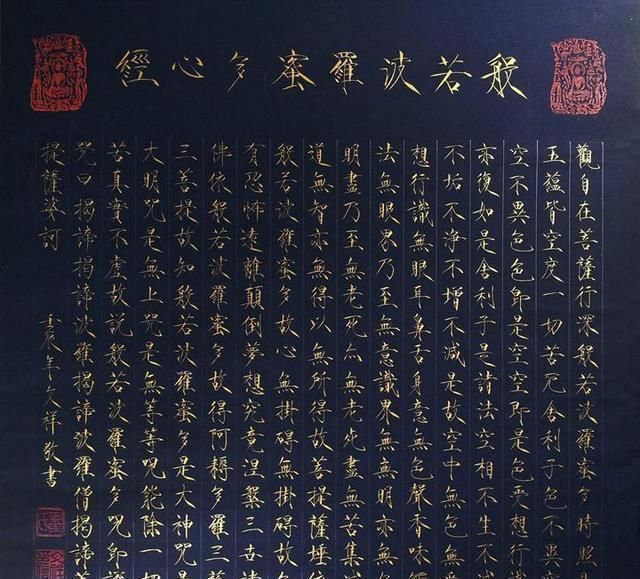 般若波羅蜜多心經
觀自在菩薩行深般若波羅蜜多時照
五蘊皆空度一切苦厄舍利子色不異
空不異色色即是空空即是色受想行
亦復如是舍利子是諸法空相不生不
不垢不淨不增不減是故空中無色無
想行識無眼耳鼻舌身意無色聲香味
法無眼界乃至無意識界無無明亦無
明盡乃至無老死亦無老死盡無苦集
道無智亦無得以無所得故菩提薩埵依
般若波羅蜜多故心無掛礙無掛礙故
有恐怖遠離顛倒夢想究竟涅槃三世諸
佛依般若波羅蜜多故得阿耨多羅三藐
三菩提故知般若波羅蜜多是大神咒是
大明咒是無上咒是無等等呪能除一切
苦真實不虛故説般若波羅蜜多呪即說
咒曰揭諦揭諦波羅揭諦波羅僧揭諦菩
提薩婆訶
壬辰年文祥敬書